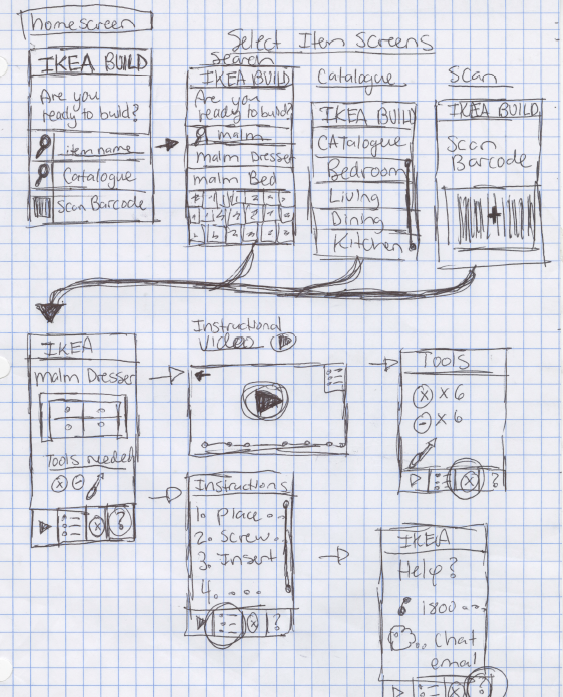 homescreen
IKEA BUILD
Are you
ready to build?
item name
Catalogue
Scan Barcode
Select Item Screens
Search
IKEA BUILD
Are you
ready to build?
malm
malm Dresser
malm Bed
Catalogue
IKEA BUILD
CATalogue
Bedroom
Living
Dining
Kitchen
Scan
IKEA BUILD
Scan
Barcode
IKEA
malm Dresser
Tools needed
?
Instructional
Video
Tools
x 6
x 6
?
Instructions
1. Place
2. Screw
3. Insert
4. ....
?
IKEA
Help?
1800
Chat
email
?